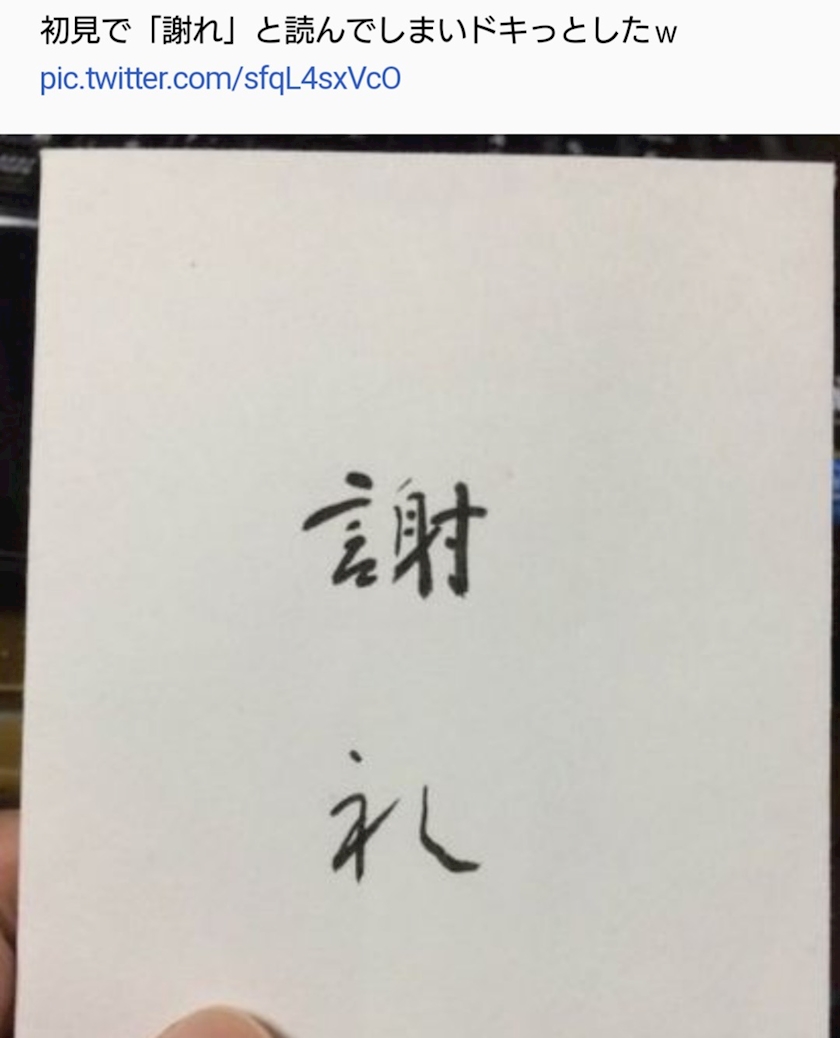 初見で「謝れ」と読んでしまいドキっとしたw
pic.twitter.com/sfqL4sxVcO
謝
礼